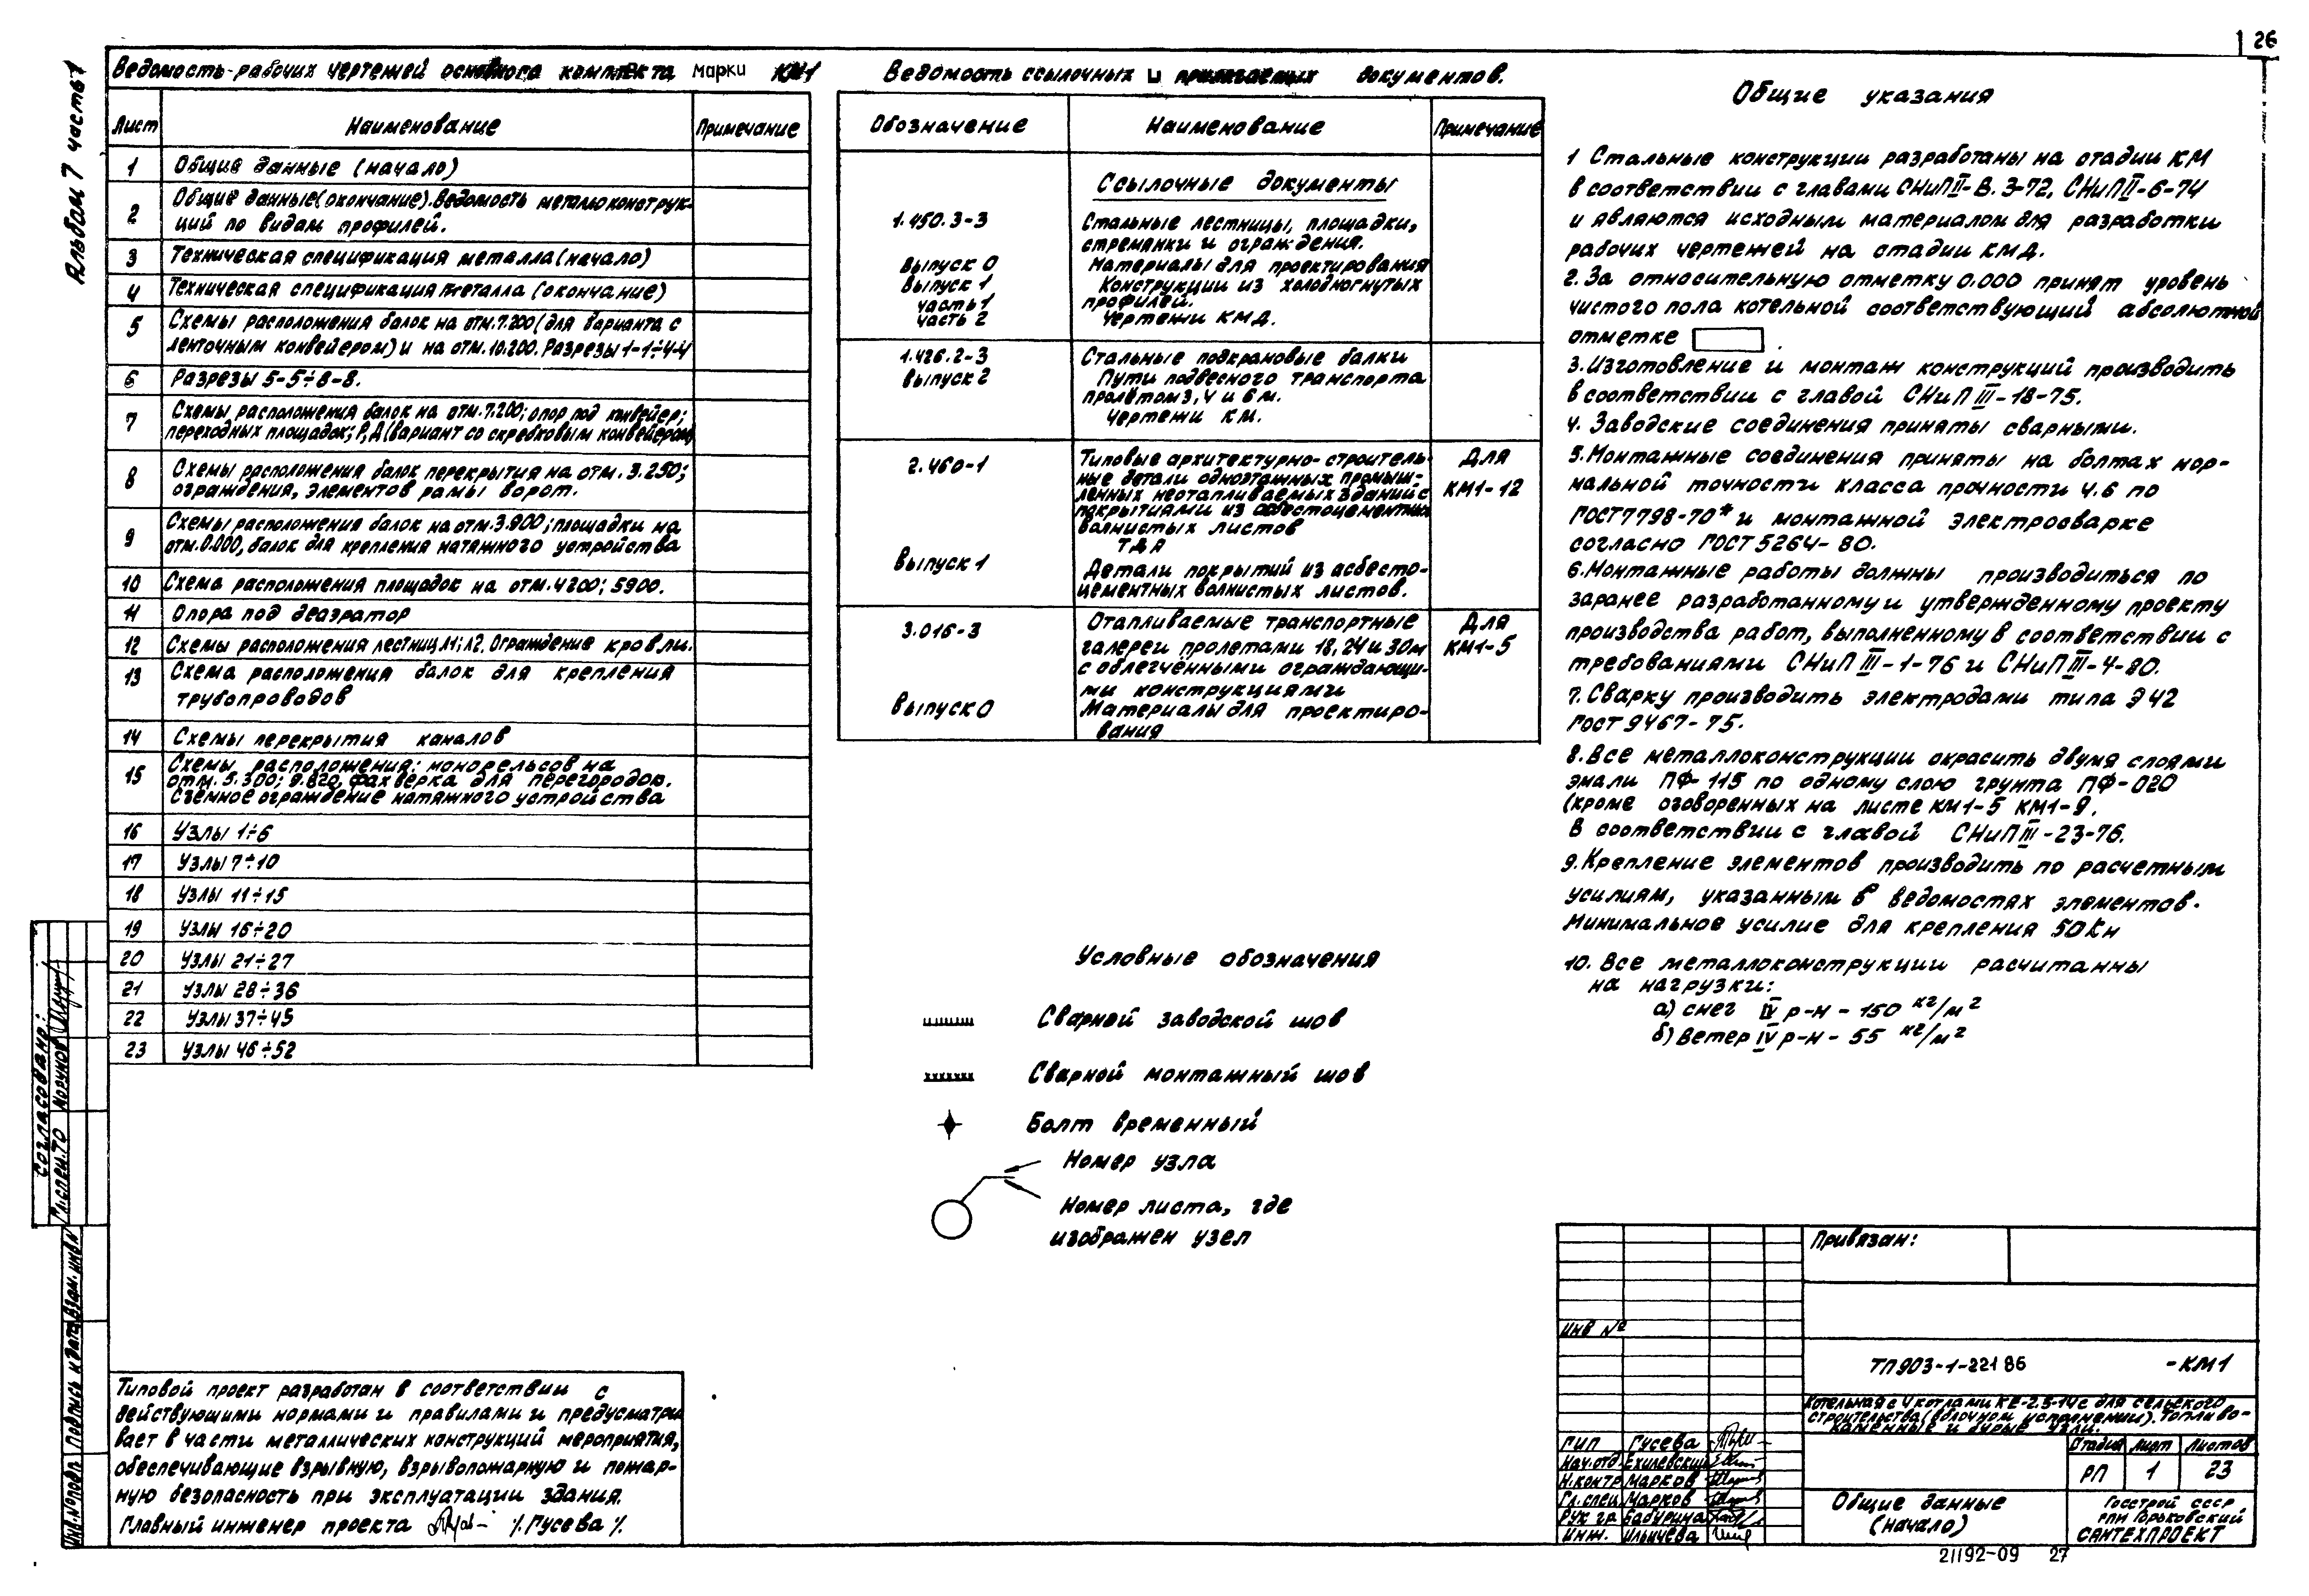 26
Альбом 7 часть 1
Ведомость рабочих чертежей основного комплекта марки КМ1
Лист Наименование Примечание
1 Общие данные (начало)
2 Общие данные (окончание). Ведомость металлоконструк-
ций по видам профилей.
3 Техническая спецификация металла (начало)
4 Техническая спецификация металла (окончание)
5 Схемы расположения балок на отм. 7.200 (для варианта с
ленточным конвейером) и на отм. 10.200. Разрезы 1-1÷4-4
6 Разрезы 5-5÷8-8.
7 Схемы расположения балок на отм. 7.200; опор под конвейер;
переходных площадок; Р, Д (вариант со скребковым конвейером)
8 Схемы расположения балок перекрытия на отм. 3.250;
ограждения, элементов рамы ворот.
9 Схемы расположения балок на отм. 3.900; площадки на
отм. 0.000, балок для крепления натяжного устройства
10 Схема расположения площадок на отм. 4200; 5900.
11 Опора под деаэратор
12 Схемы расположения лестниц Л1; Л2. Ограждение кровли.
13 Схема расположения балок для крепления
трубопроводов
14 Схемы перекрытия каналов
15 Схемы расположения: монорельсов на
отм. 5.300; 9.820, фахверка для перегородок.
Съемное ограждение натяжного устройства
16 Узлы 1÷6
17 Узлы 7÷10
18 Узлы 11÷15
19 Узлы 16÷20
20 Узлы 21÷27
21 Узлы 28÷36
22 Узлы 37÷45
23 Узлы 46÷52
Ведомость ссылочных и прилагаемых документов.
Обозначение Наименование Примечание
Ссылочные документы
1.450.3-3 Стальные лестницы, площадки,
стремянки и ограждения.
Выпуск 0 Материалы для проектирования
Выпуск 1 Конструкции из холодногнутых
часть 1 профилей.
часть 2 Чертежи КМД.
1.426.2-3 Стальные подкрановые балки
Выпуск 2 Пути подвесного транспорта
пролётом 3, 4 и 6 м.
Чертежи КМ.
2.460-1 Типовые архитектурно-строитель- Для
ные детали одноэтажных промыш-
ленных неотапливаемых зданий с КМ1-12
покрытиями из асбестоцементных
волнистых листов
ТДА
Выпуск 1 Детали покрытий из асбесто-
цементных волнистых листов.
3.016-3 Отапливаемые транспортные Для
галереи пролетами 18, 24 и 30 м КМ1-5
с облегчёнными ограждающи-
ми конструкциями
Выпуск 0 Материалы для проектиро-
вания
Условные обозначения
Сварной заводской шов
Сварной монтажный шов
Болт временный
Номер узла
Номер листа, где
изображен узел
Общие указания
1 Стальные конструкции разработаны на стадии КМ
в соответствии с главами СНиП II-В.3-72, СНиП II-6-74
и являются исходным материалом для разработки
рабочих чертежей на стадии КМД.
2. За относительную отметку 0.000 принят уровень
чистого пола котельной соответствующий абсолютной
отметке .
3. Изготовление и монтаж конструкций производить
в соответствии с главой СНиП III-18-75.
4. Заводские соединения приняты сварными.
5. Монтажные соединения приняты на болтах нор-
мальной точности класса прочности 4.6 по
ГОСТ 7798-70* и монтажной электросварке
согласно ГОСТ 5264-80.
6. Монтажные работы должны производиться по
заранее разработанному и утвержденному проекту
производства работ, выполненному в соответствии с
требованиями СНиП III-1-76 и СНиП III-4-80.
7. Сварку производить электродами типа Э42
ГОСТ 9467-75.
8. Все металлоконструкции окрасить двумя слоями
эмали ПФ-115 по одному слою грунта ПФ-020
(кроме оговоренных на листе КМ1-5 КМ1-9.
В соответствии с главой СНиП III-23-76.
9. Крепление элементов производить по расчетным
усилиям, указанным в ведомостях элементов.
Минимальное усилие для крепления 50 кН
10. Все металлоконструкции расчитанны
на нагрузки:
а) снег IV р-н - 150 кг/м²
б) ветер IV р-н - 55 кг/м²
Типовой проект разработан в соответствии с
действующими нормами и правилами и предусматри
вает в части металлических конструкций мероприятия,
обеспечивающие взрывную, взрывопожарную и пожар-
ную безопасность при эксплуатации здания.
Главный инженер проекта /Гусева/.
Согласовано:
Гл. спец. ТО Моруков
Инв. № подл. Подпись и дата Взам. инв. №
Привязан:
Инв №
ТП 903-1-221 86 -КМ1
Котельная с 4 котлами КЕ-2.5-14с для сельского
строительства (в блочном исполнении). Топливо-
каменные и бурые угли.
ГИП Гусева
Нач. отд. Ехилевский
Н. контр Марков
Гл. спец. Марков
Рук. гр Бабурина
Инж. Ильичева
Стадия Лист Листов
РП 1 23
Общие данные
(начало)
Госстрой СССР
ГПИ Горьковский
САНТЕХПРОЕКТ
21192-09 27